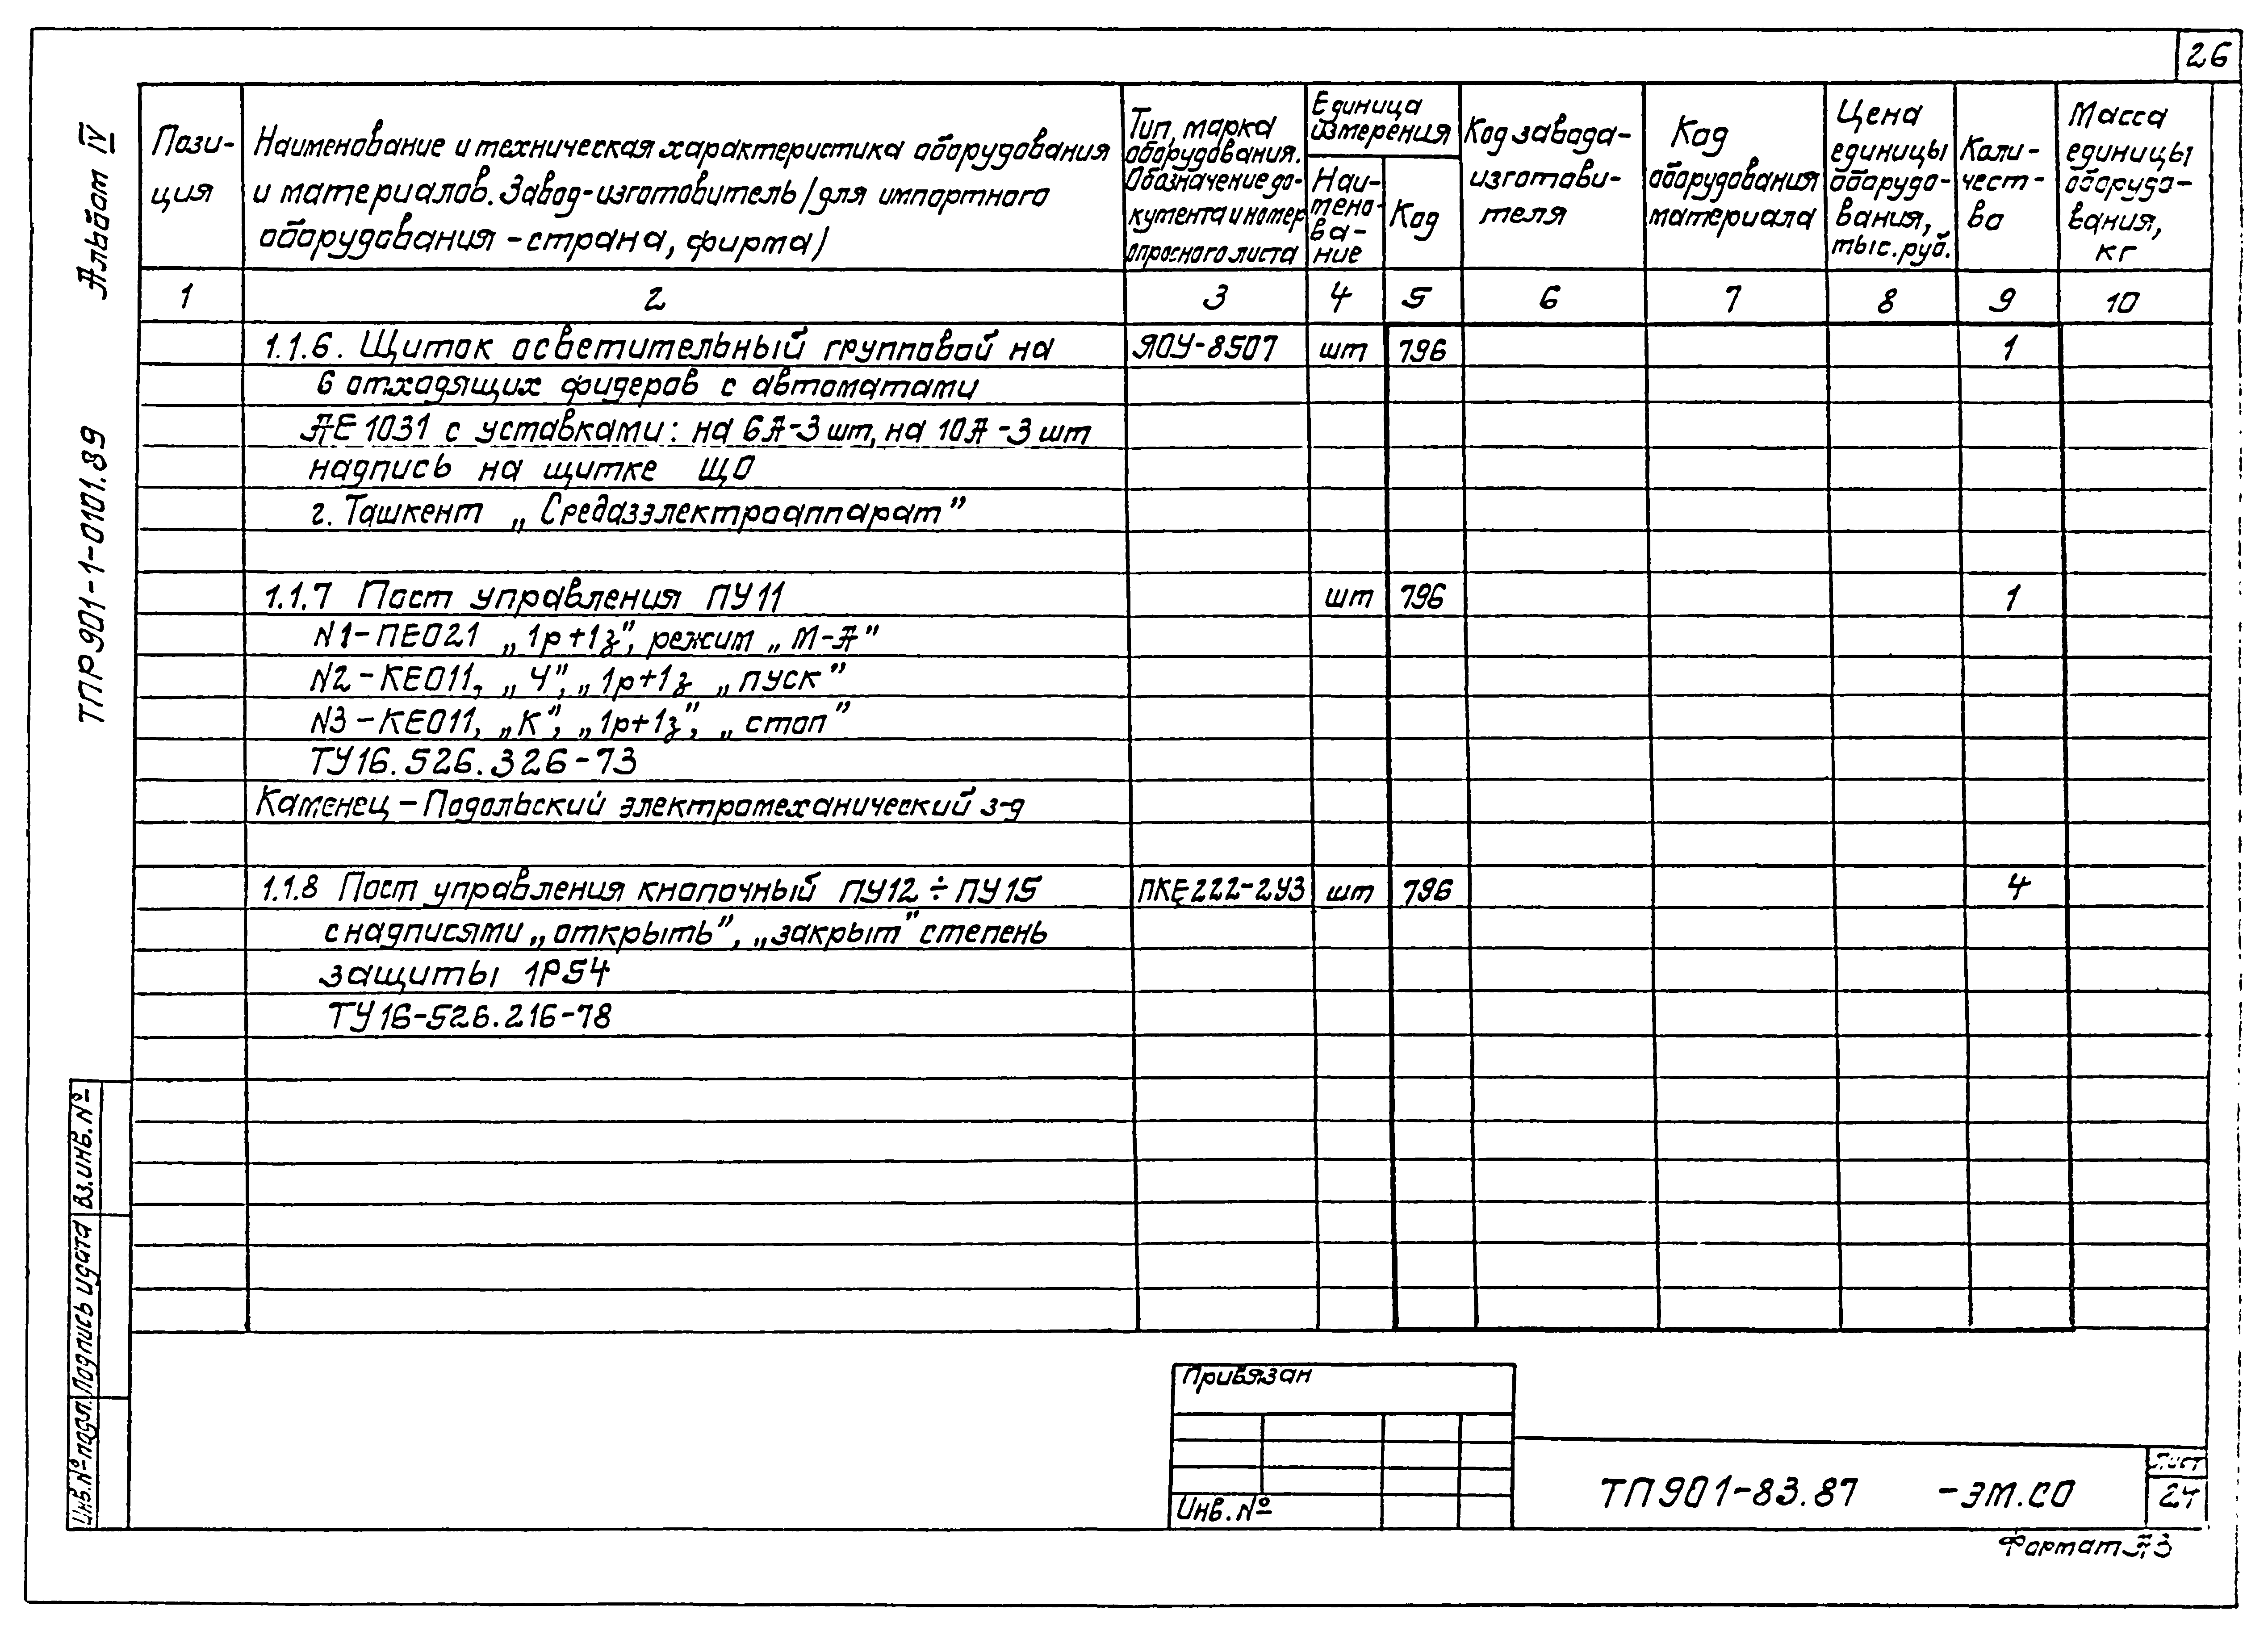 26
Альбом IV
ТПР901-1-0101.89
Пози-
ция
Наименование и техническая характеристика оборудования
и материалов. Завод-изготовитель /для импортного
оборудования - страна, фирма/
Тип, марка
оборудования.
Обозначение до-
кумента и номер
опросного листа
Единица
измерения
Наи-
мено-
ва-
ние
Код
Код завода-
изготови-
теля
Код
оборудования
материала
Цена
единицы
оборудо-
вания,
тыс. руб.
Коли-
чест-
во
Масса
единицы
оборудо-
вания,
кг
1 2 3 4 5 6 7 8 9 10
1.1.6. Щиток осветительный групповой на ЯОУ-8507 шт 796 1
6 отходящих фидеров с автоматами
АЕ1031 с уставками: на 6А-3 шт, на 10А-3 шт
надпись на щитке ЩО
г. Ташкент „Средазэлектроаппарат"
1.1.7 Пост управления ПУ11 шт 796 1
N1-ПЕ021 „1р+1з", режим „М-А"
N2-КЕ011, „Ч", „1р+1з „пуск"
N3-КЕ011, „К", „1р+1з", „стоп"
ТУ16.526.326-73
Каменец-Подольский электромеханический з-д
1.1.8 Пост управления кнопочный ПУ12÷ПУ15 ПКЕ222-2У3 шт 796 4
с надписями „открыть", „закрыт" степень
защиты 1Р54
ТУ16-526.216-78
Вз.инв.№
Подпись и дата
Инв.№подл.
Привязан
Инв.№
ТП901-83.87 -ЭМ.СО
Лист
24
Формат А3